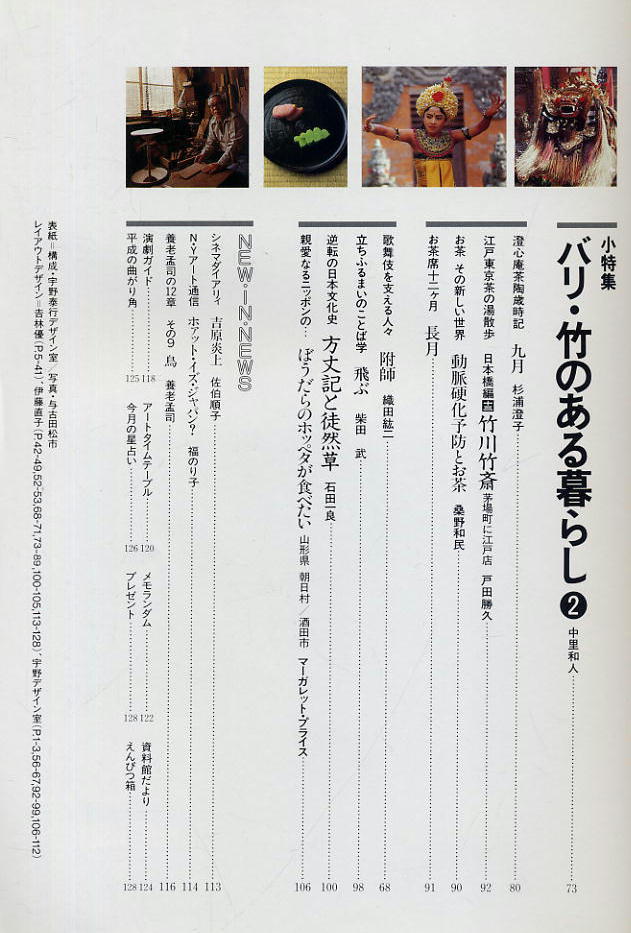 小特集
バリ・竹のある暮らし❷ 中里和人 73
澄心庵茶陶歳時記 九月 杉浦澄子 80
江戸東京茶の湯散歩 日本橋編 竹川竹斎 茅場町に江戸店 戸田勝久 92
お茶 その新しい世界 動脈硬化予防とお茶 桑野和民 90
お茶席十二ヶ月 長月 91
歌舞伎を支える人々 附師 織田紘二 68
立ちふるまいのことば学 飛ぶ 柴田 武 98
逆転の日本文化史 方丈記と徒然草 石田一良 100
親愛なるニッポンの… ぼうだらのホッペタが食べたい 山形県 朝日村／酒田市 マーガレット・プライス 106
NEW・IN・NEWS
シネマダイアリィ 吉原炎上 佐伯順子 113
N・Yアート通信 ホァット・イズ・ジャパン？ 福のり子 114
養老孟司の12章 その9 鳥 養老孟司 116
演劇ガイド 118 アートタイムテーブル 120 メモランダム 122 資料館だより 124
平成の曲がり角 125 今月の星占い 126 プレゼント 128 えんぴつ箱 128
表紙＝構成・宇野泰行デザイン室／写真・与古田松市
レイアウトデザイン＝吉林優(P.5-41)、伊藤直子(P.42-49,52-53,68-71,73-89,100-105,113-128)、宇野デザイン室(P.1-3,56-67,92-99,106-112)